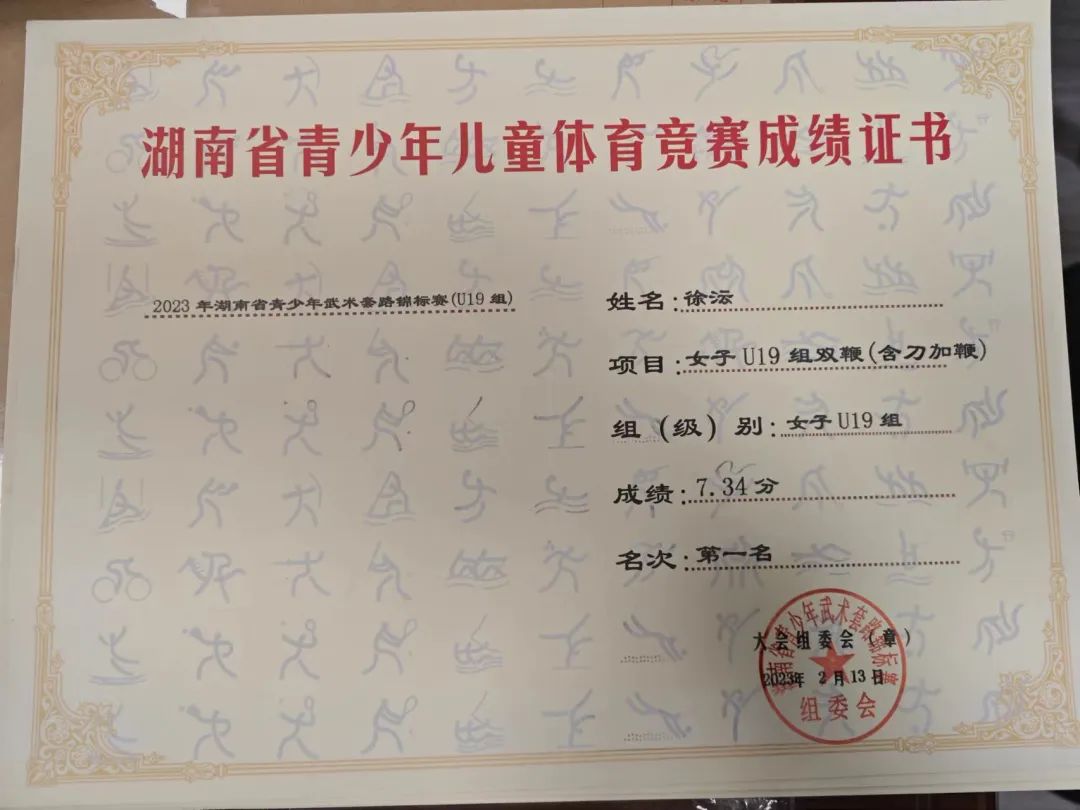 湖南省青少年儿童体育竞赛成绩证书
2023 年湖南省青少年武术套路锦标赛(U19 组)
姓名:徐沄
项目:女子 U19 组双鞭(含刀加鞭)
组（级）别:女子 U19 组
成绩:7.34 分
名次:第一名
大会组委会（章）
2023年 2 月 13 日
湖南省青少年武术套路锦标赛
组委会